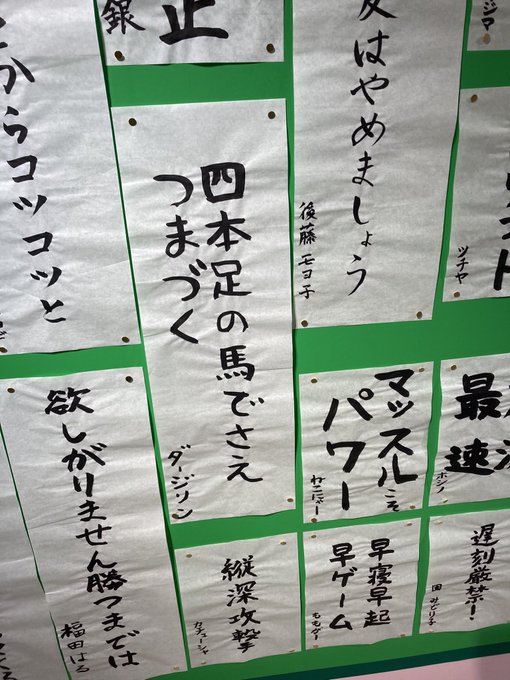 ジマ
はやめましょう
後藤 モヨ子
銀
からコツコツと
ツチヤ
四本足の馬でさえ
つまづく
ダージリン
最速
ホシノ
マッスルこそ
パワー
ねこにゃー
欲しがりません勝つまでは
福田はる
遅刻厳禁!
園 みどり子
早寝早起
早ゲーム
ももがー
縦深攻撃
カチューシャ